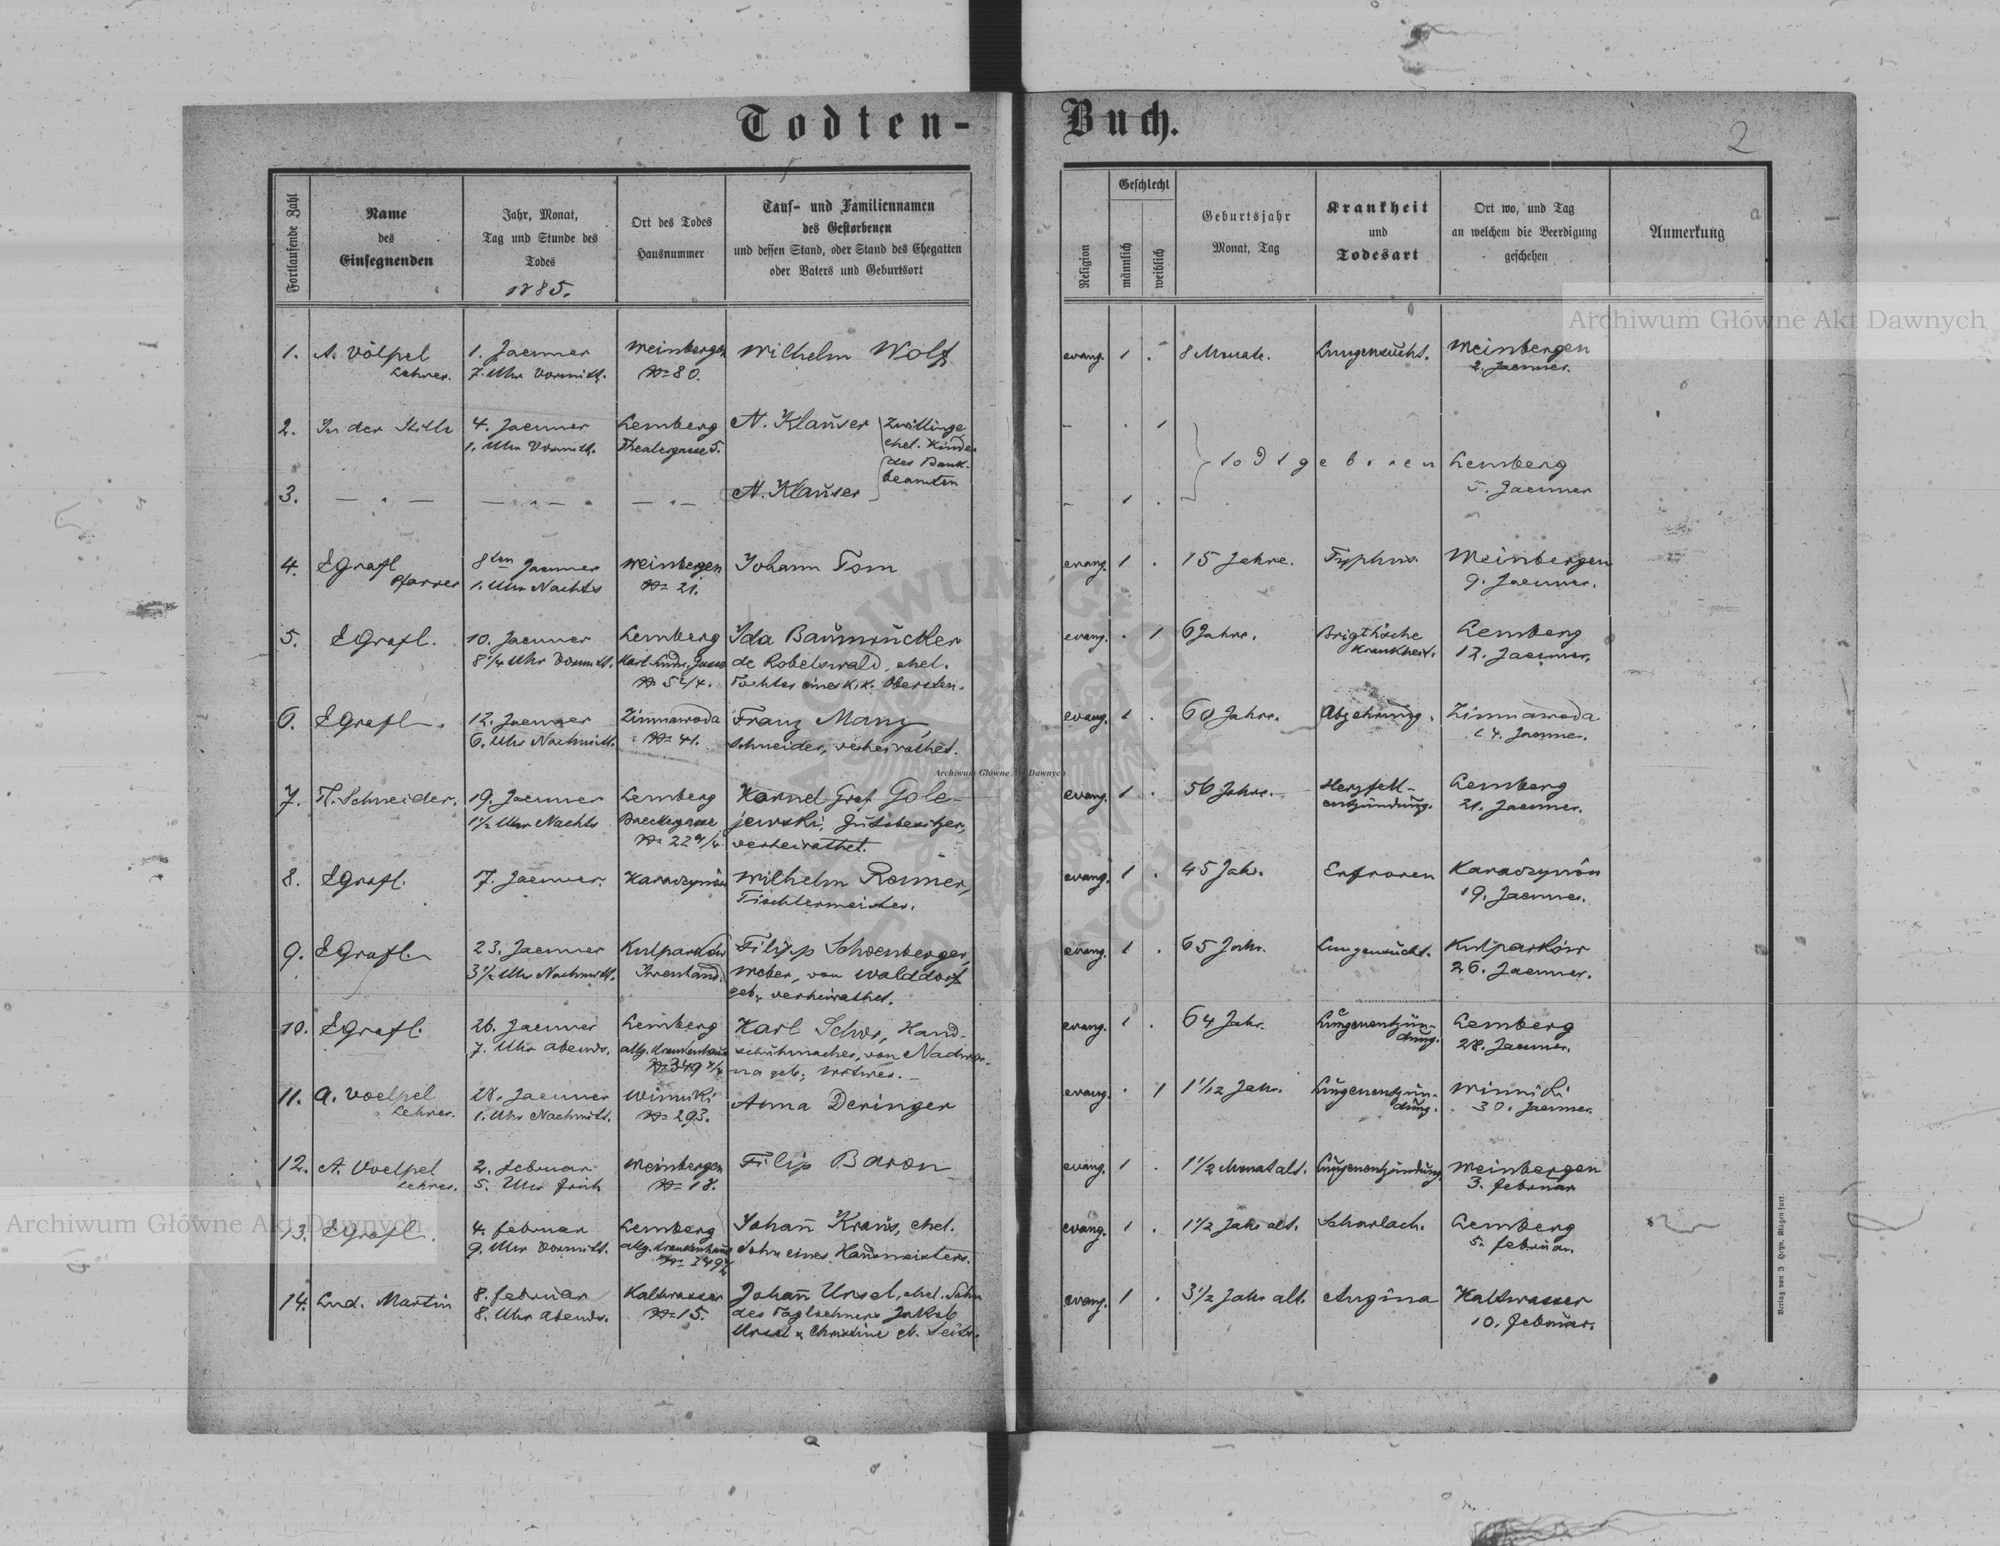 Todten-Buch.
2
Fortlaufende Zahl
Name
des
Einsegnenden
Jahr, Monat,
Tag und Stunde des
Todes
1885.
Ort des Todes
Hausnummer
Tauf- und Familiennamen
des Gestorbenen
und dessen Stand, oder Stand des Ehegatten
oder Vaters und Geburtsort
Religion
Geschlecht
männlich
weiblich
Geburtsjahr
Monat, Tag
Krankheit
und
Todesart
Ort wo, und Tag
an welchem die Beerdigung
geschehen
Anmerkung
Archiwum Główne Akt Dawnych
1. A. Völpel 1. Jaenner Weinbergen Wilhelm Wolf evang. 1 . 8 Monate. Lungensucht. Weinbergen
Lehrer. 7. Uhr Vormitt. № 80. 2. Jaenner.
2. In der Stille 4. Jaenner Lemberg N. Klauser Zwillinge - . 1
1. Uhr Vormitt. Theatergasse 5. ehel. Kinder
des Bank- todtgeboren Lemberg
beamten
3. — " — — " — — " — N. Klauser - 1 . 5. Jaenner
4. EGrafl 8ten Jaenner Weinbergen Johann Tom evang. 1 . 15 Jahre. Typhus Weinbergen
Pfarrer 1. Uhr Nachts № 21. 9. Jaenner.
5. EGrafl. 10. Jaenner Lemberg Ida Baumrucker evang. . 1 6 Jahre. Brigth'sche Lemberg
8 1/4 Uhr Vormitt. Karl Ludw. Gasse de Robelswald, ehel. Krankheit. 12. Jaenner.
Tochter eines k.k. Obersten.
6. EGrafl. 12. Jaenner Zimnawoda Franz Manz, evang. 1 . 60 Jahre. Abzehrung. Zimnawoda
6. Uhr Nachmitt. № 41. Schneider, verheirathet. 14. Jaenner.
7. Schneider. 19. Jaenner Lemberg Kornel Graf Gole- evang. 1 . 56 Jahre. Herzfell- Lemberg
1 1/2 Uhr Nachts jewski, Gutsbesitzer, entzündung. 21. Jaenner.
verheirathet.
8. EGrafl. 17. Jaenner. Karaczynów Wilhelm Renner, evang. 1 . 45 Jah. Erfroren Karaczynów
Tischlermeister. 19. Jaenner.
9. EGrafl. 23. Jaenner Kulparków Filipp Schoenberger, evang. 1 . 65 Jahr. Lungensucht. Kulparków
3 1/2 Uhr Nachmitt. Weber, von Walddorf 26. Jaenner.
geb., verheirathet.
10. EGrafl. 26. Jaenner Lemberg Karl Hand- evang. 1 . 64 Jahr. Lungenentzün- Lemberg
7. Uhr Abends. allg. Krankenhaus schuhmacher, von Nadwor- dung. 28. Jaenner.
na geb., Witwer.
11. A. Voelpel 28. Jaenner Winniki Anna Deringer evang. . 1 1 1/12 Jahr. Lungenentzün- Winniki
Lehrer. 1. Uhr Nachmitt. № 293. dung. 30. Jaenner.
12. A. Voelpel 2. Februar Weinbergen Filip Baron evang. 1 . 1 1/2 Monat alt. Lungenentzündung Weinbergen
Lehrer. 5. Uhr früh № 18. 3. Februar
13. EGrafl. 4. Februar Lemberg Johann Kraus, ehel. evang. 1 . 1 1/2 Jahr alt. Scharlach. Lemberg
9. Uhr Vormitt. allg. Krankenhaus Sohn eines Hausmeisters. 5. Februar.
14. Lud. Martin 8. Februar Kaltwasser Johann Ursel, ehel. Sohn evang. 1 . 3 1/2 Jahr alt. Angina Kaltwasser
8. Uhr Abends. № 15. des Taglöhners Jakob 10. Februar.
Ursel u. Christine
Archiwum Główne Akt Dawnych
Archiwum Główne Akt Dawnych